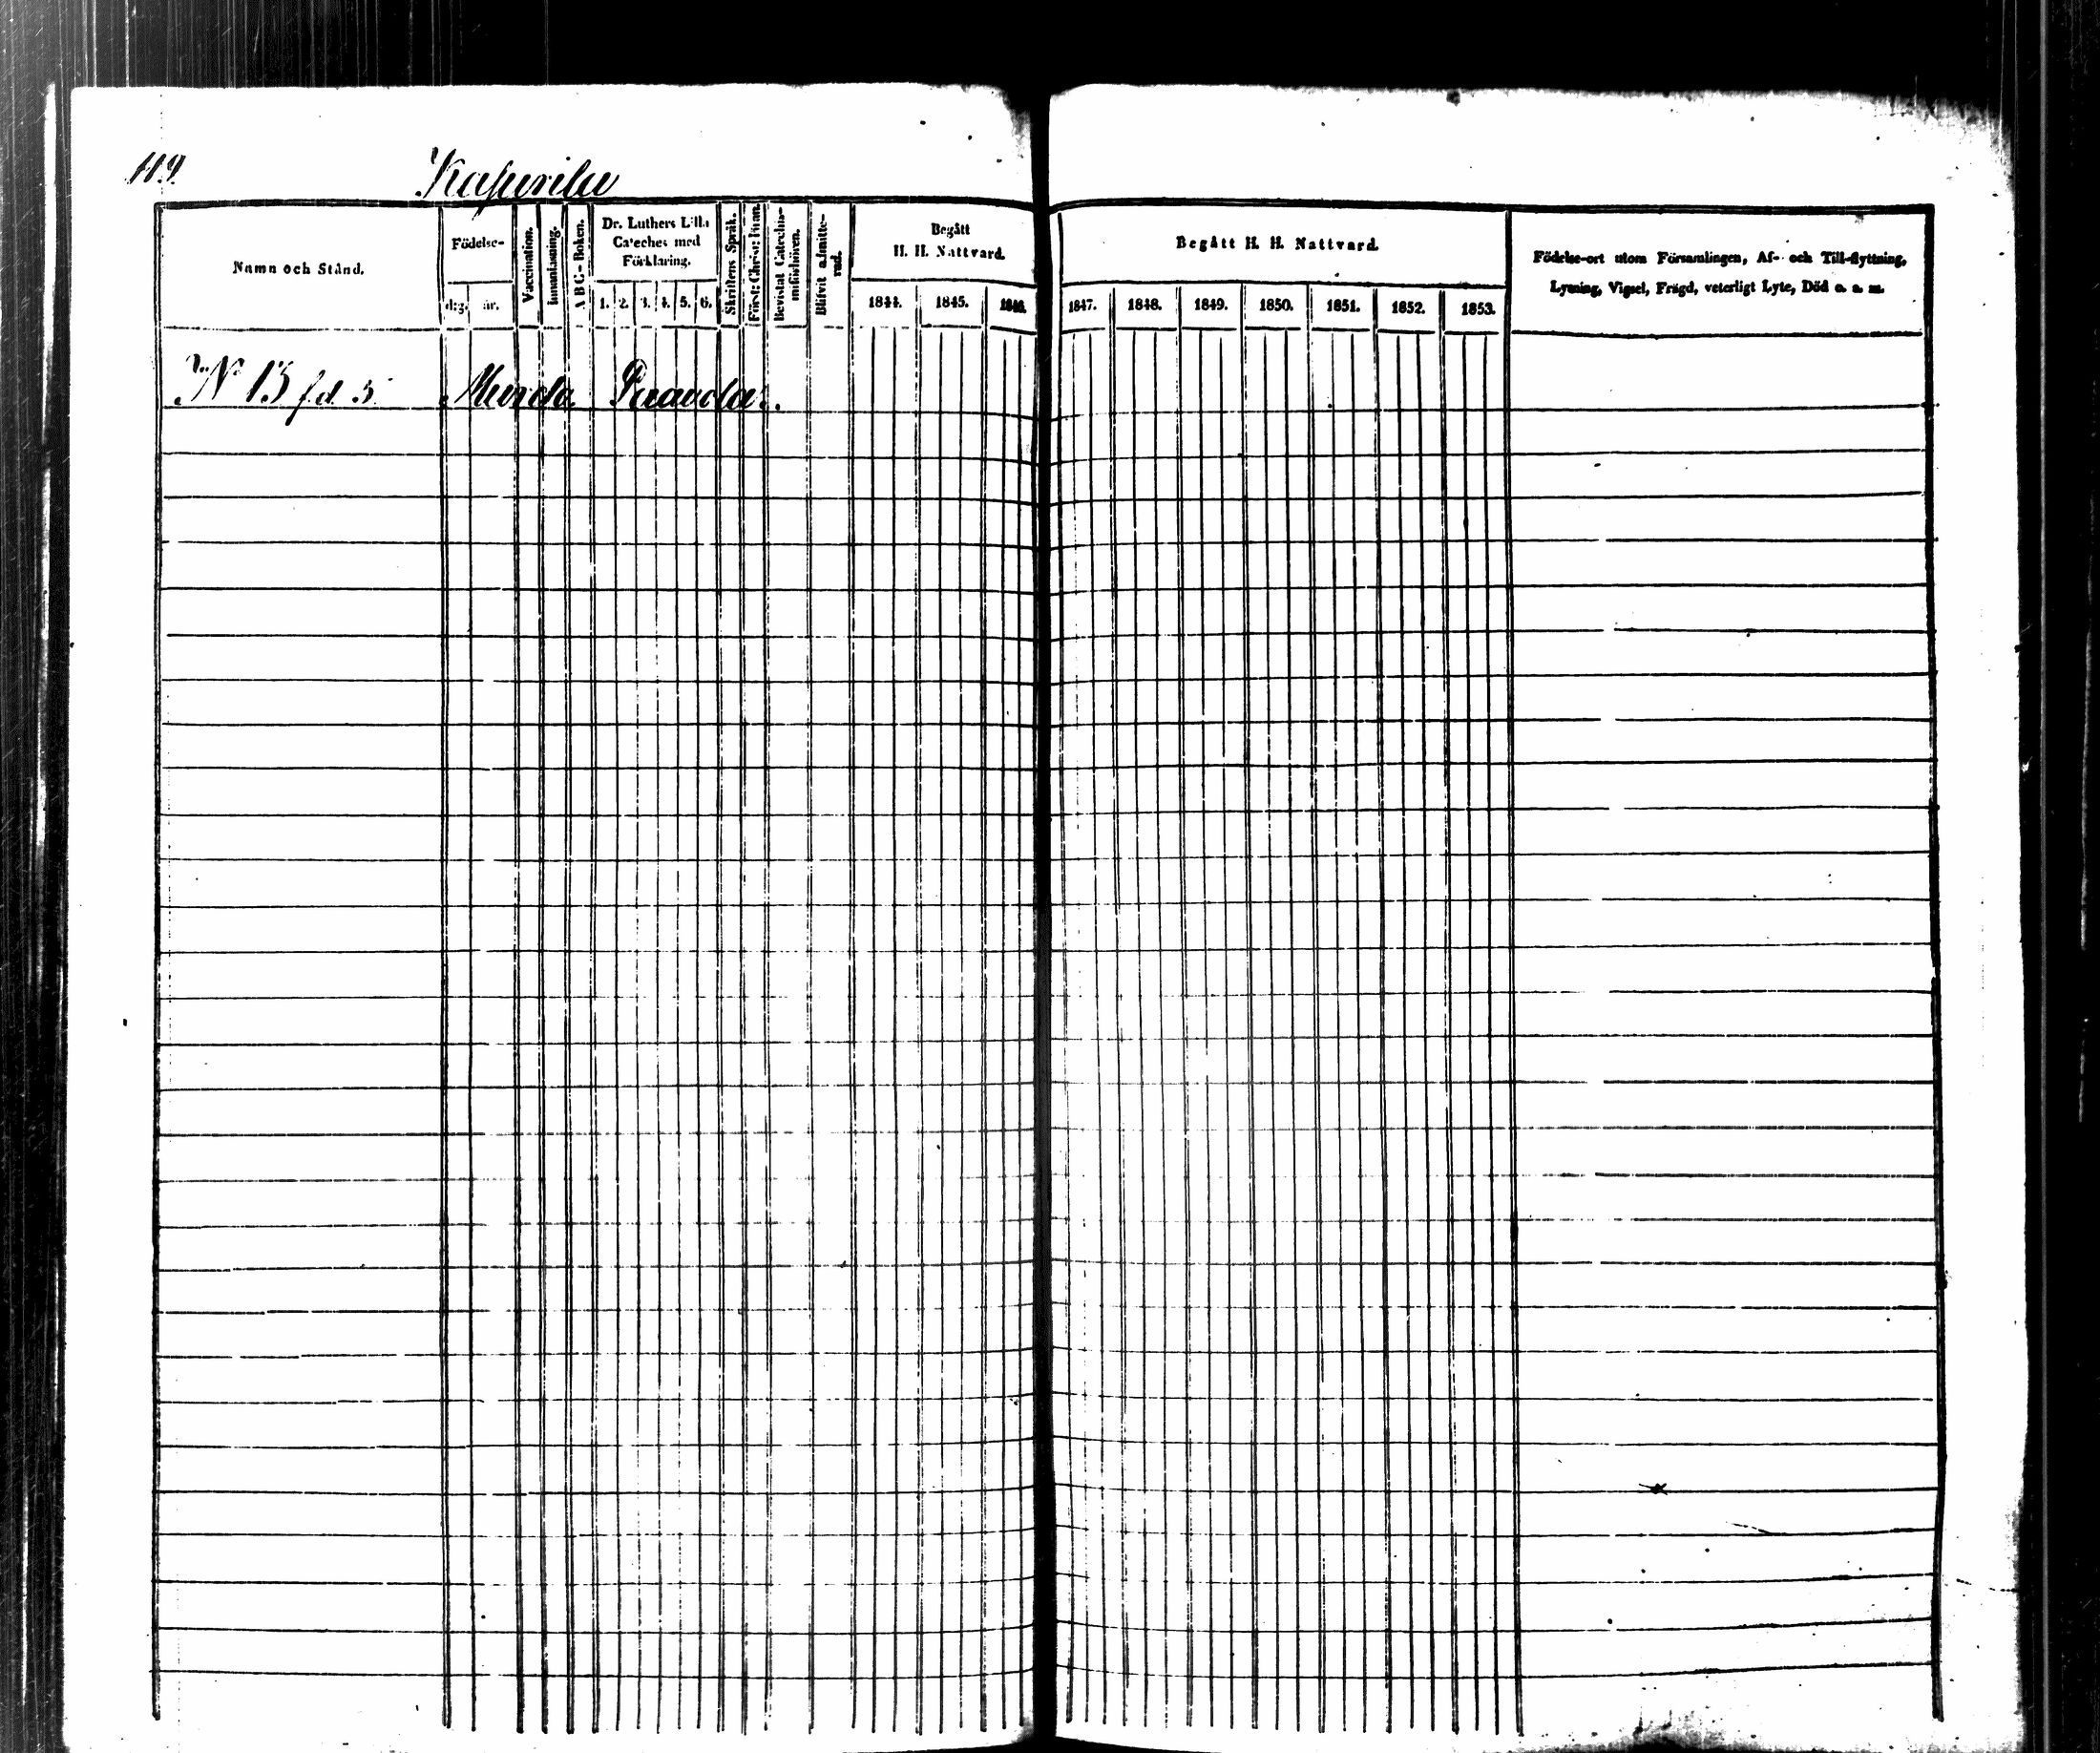 119.
Namn och Stånd.
Födelse-
dag. år.
Vaccination.
Innanläsning.
A B C-Boken.
Dr. Luthers Lilla
Cateches med
Förklaring.
1. 2. 3. 4. 5. 6.
Skriftens Språk.
Bevistat Catechis-
misförhören.
Blifvit admitte-
rad.
Begått
H. H. Nattvard.
1844. 1845. 1846.
Begått H. H. Nattvard.
1847. 1848. 1849. 1850. 1851. 1852. 1853.
Födelse-ort utom Församlingen, Af- och Till-flyttning,
Lysning, Vigsel, Frägd, veterligt Lyte, Död o. s. m.
N° 13 fd 5